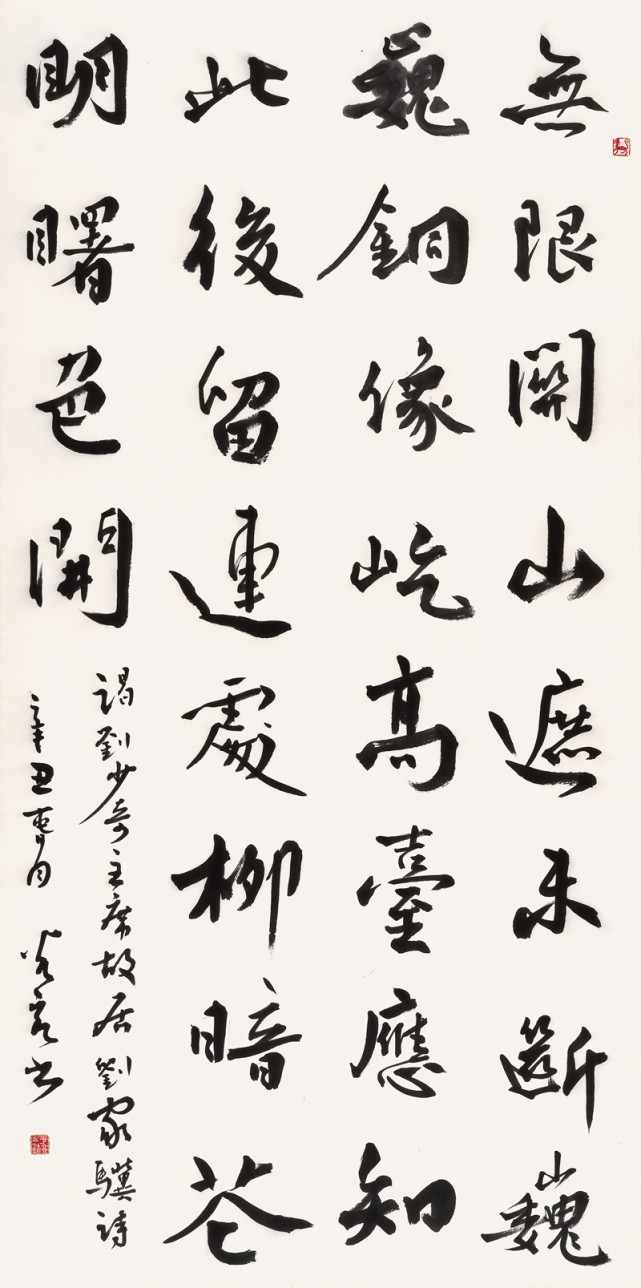 無限關山遮未斷巍
巍銅像屹高臺應知
此後留連處柳暗花
明曙色開
謁劉少奇主席故居劉家驥詩
辛丑春月 书